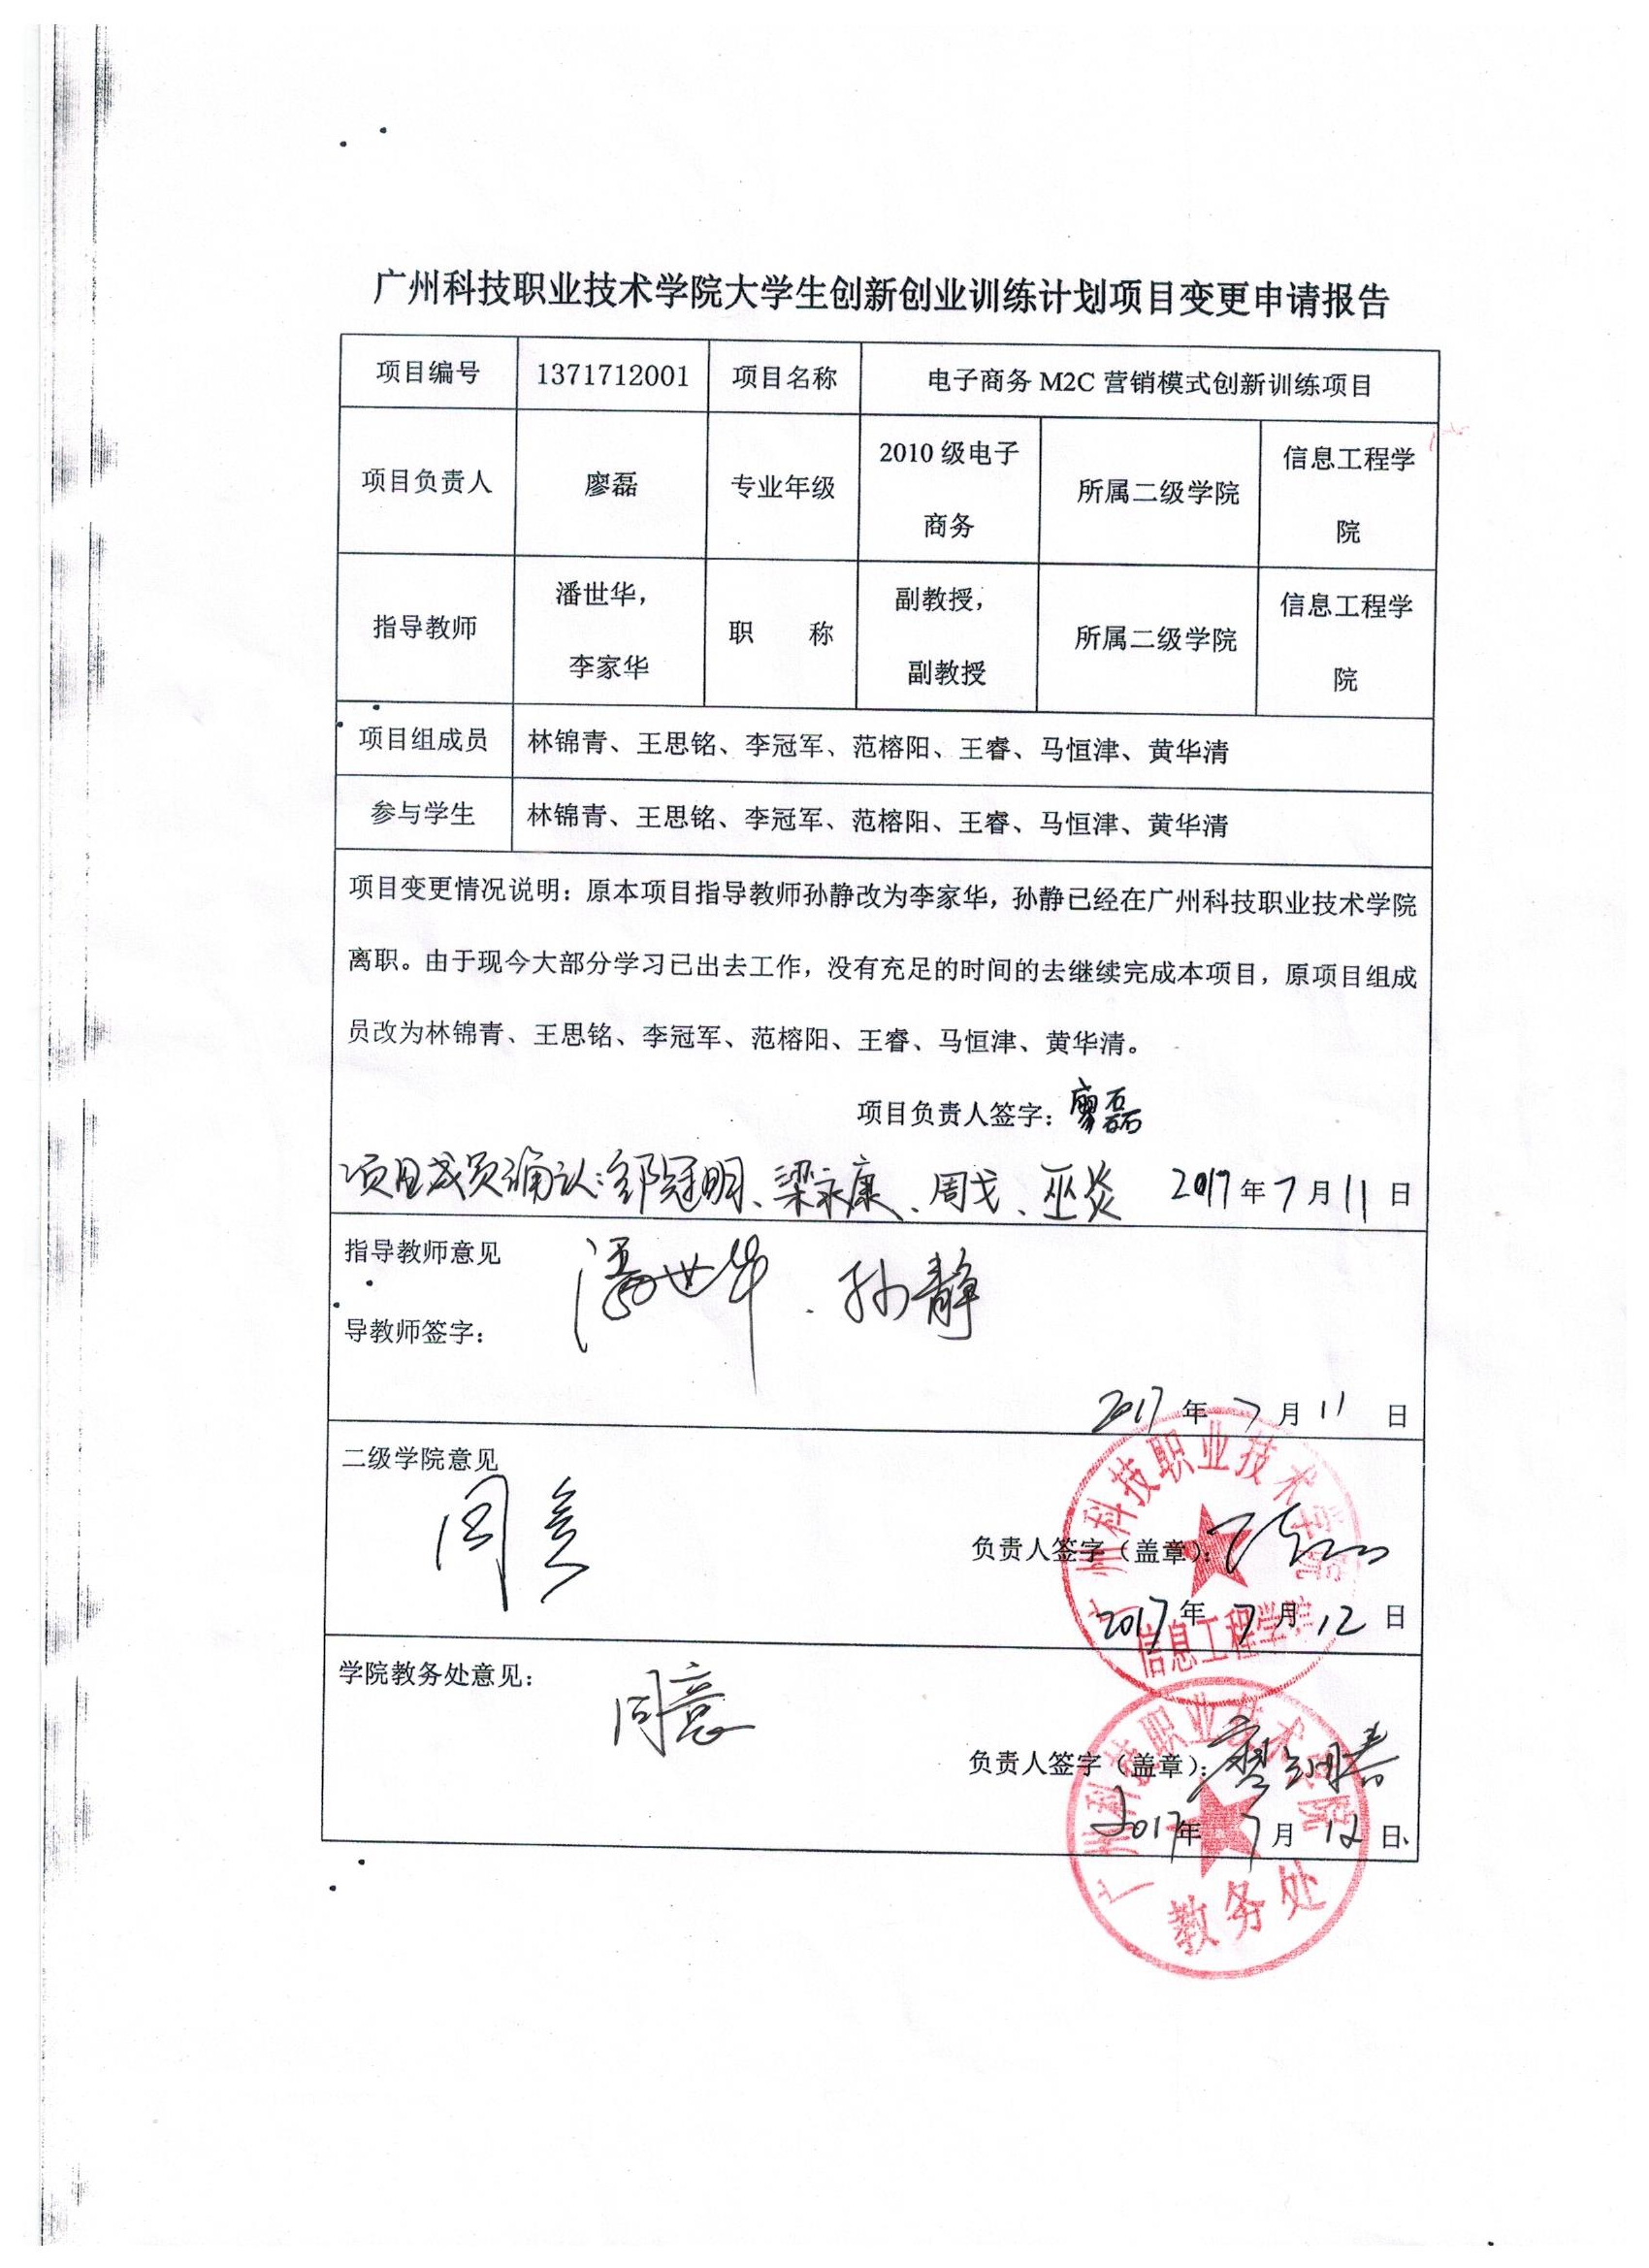 广州科技职业技术学院大学生创新创业训练计划项目变更申请报告
项目编号 1371712001 项目名称 电子商务 M2C 营销模式创新训练项目
项目负责人 廖磊 专业年级 2010 级电子商务 所属二级学院 信息工程学院
指导教师 潘世华，李家华 职 称 副教授，副教授 所属二级学院 信息工程学院
项目组成员 林锦青、王思铭、李冠军、范榕阳、王睿、马恒津、黄华清
参与学生 林锦青、王思铭、李冠军、范榕阳、王睿、马恒津、黄华清
项目变更情况说明：原本项目指导教师孙静改为李家华，孙静已经在广州科技职业技术学院
离职。由于现今大部分学习已出去工作，没有充足的时间的去继续完成本项目，原项目组成
员改为林锦青、王思铭、李冠军、范榕阳、王睿、马恒津、黄华清。
项目负责人签字：廖磊
项目成员确认：邹冠明、梁永康、周戈、巫炎 2017年7月11日
指导教师意见
潘世华、孙静
导教师签字：
2017年7月11日
二级学院意见
同意
负责人签字（盖章）：
2017年7月12日
广州科技职业技术学院
信息工程学院
学院教务处意见：
同意
负责人签字（盖章）：廖
2017年7月12日
广州科技职业技术学院
教务处